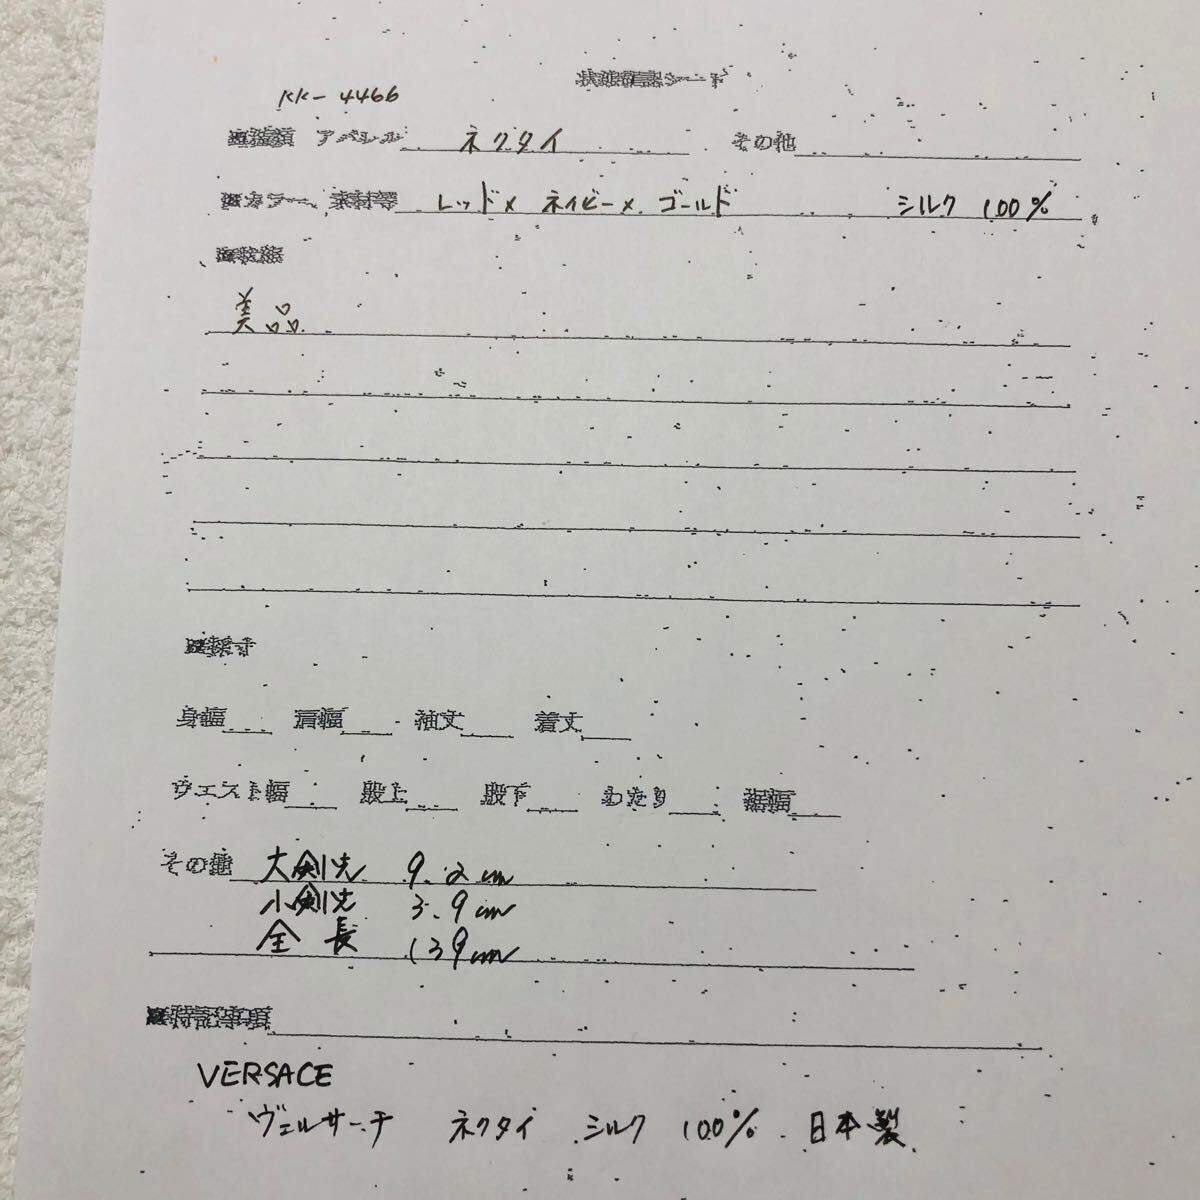 状態確認シート
KK-4466
■種類 アパレル ネクタイ その他
■カラー、素材等 レッド× ネイビー× ゴールド シルク 100%
■状態
美品
■採寸
身幅 肩幅 袖丈 着丈
ウエスト幅 股上 股下 わたり 裾幅
その他 大剣先 9.2cm
小剣先 3.9cm
全長 139cm
■特記事項
VERSACE
ヴェルサーチ ネクタイ シルク 100% 日本製